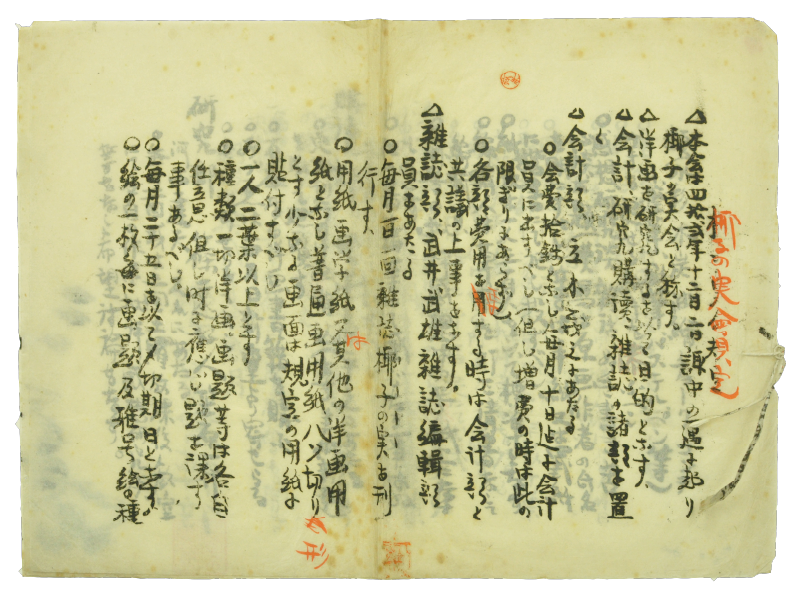 椰子の実会規定
△本会は四拾弐年十二月二日諏中の一遇に起り
椰子ノ実会と称す。
△洋画を研究するを以て目的となす、
△会計、研究、購讀、雑誌の諸部を置
く
△会計部、立木
之にあたる
○会費拾銭となし毎月十日迄に会計
員に出すべし但し増費の時は此の
限りにあらず
○各部費用を用する時は会計部と
共議の上事をなす。
△雑誌部、武井武雄雑誌編輯部
員にあたる
○毎月一回雑誌椰子の実を刊
行す、
○用紙画学紙又は其他の洋画用
紙となし普通画用紙八ツ切り
の形
とす少なる画面は規定の用紙に
貼付すべし
○一人二葉以上とす
○種類一切洋画。画題等は各自
任意但し時に應じ題を課す
事あるべし。
○毎月二十五日を以て〆切期日とす。
○絵の一枚毎に画題及雅号絵の種